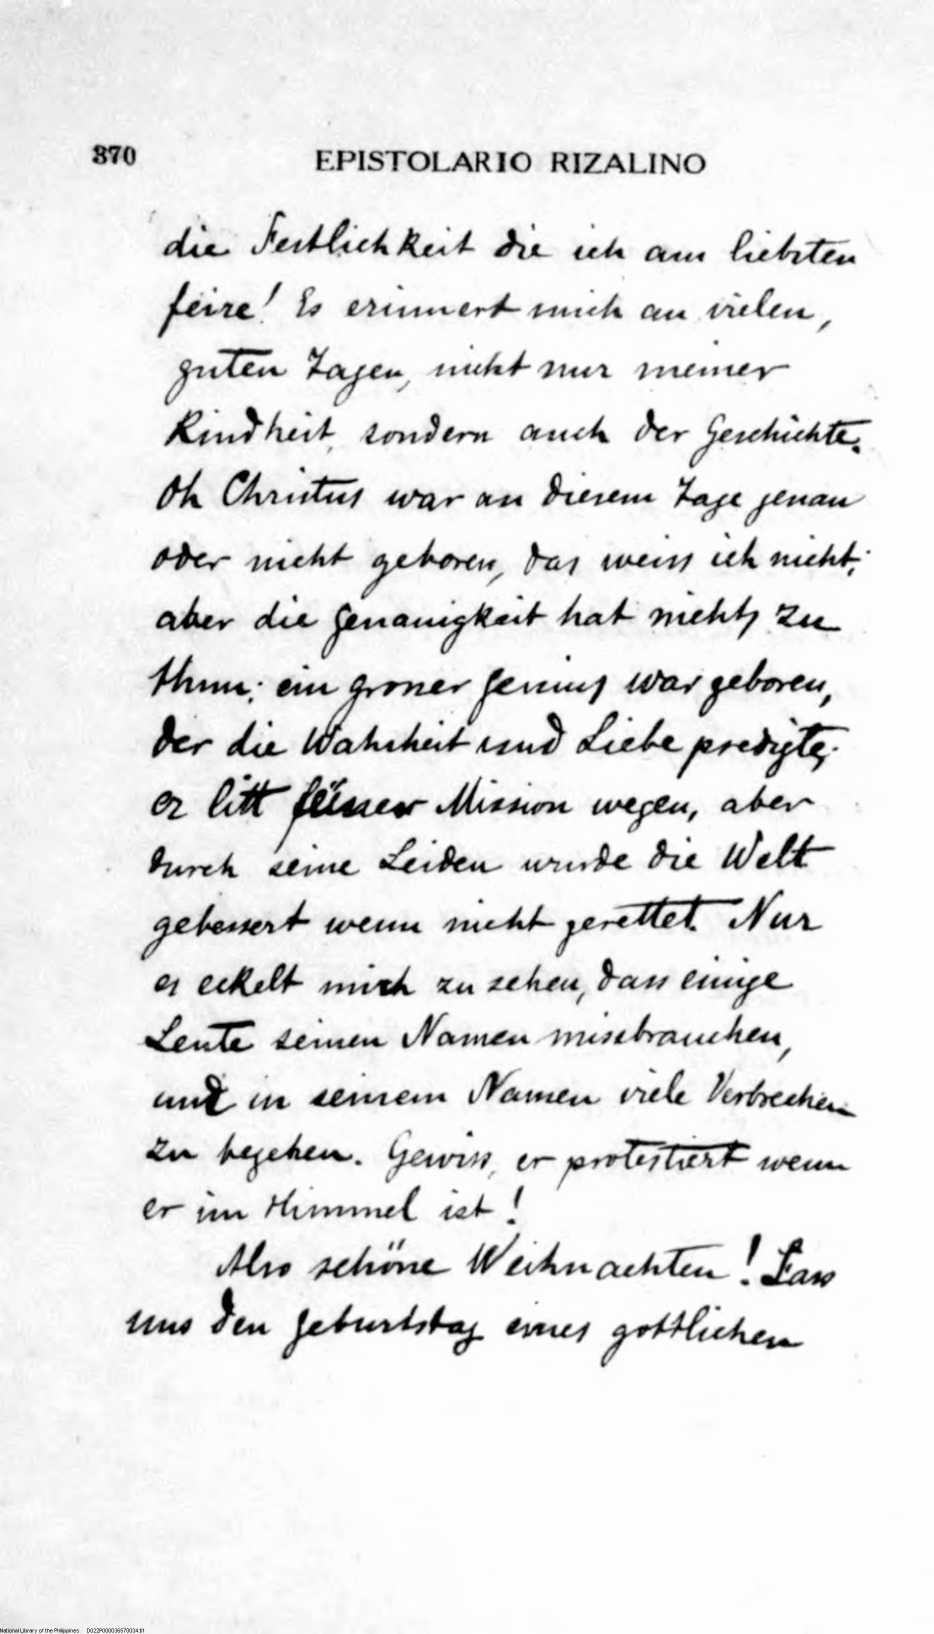 370
EPISTOLARIO RIZALINO
die Festlichkeit die ich am liebsten
feire! Es erinnert mich an vielen,
guten Tagen, nicht nur meiner
Kindheit, sondern auch der Geschichte.
Ob Christus war an diesem Tage genau
oder nicht geboren, das weiss ich nicht;
aber die Genauigkeit hat nichts zu
thun; ein grosser Genius war geboren,
der die Wahrheit und Liebe predigte;
er litt seiner Mission wegen, aber
durch seine Leiden wurde die Welt
gebessert wenn nicht gerettet. Nur
es eckelt mich zu sehen, dass einige
Leute seinen Namen missbrauchen,
und in seinem Namen viele Verbrechen
zu begehen. Gewiss, er protestiert wenn
er im Himmel ist!
Also schöne Weihnachten! Lass
uns den Geburtstag eines gottlichen
National Library of the Philippines